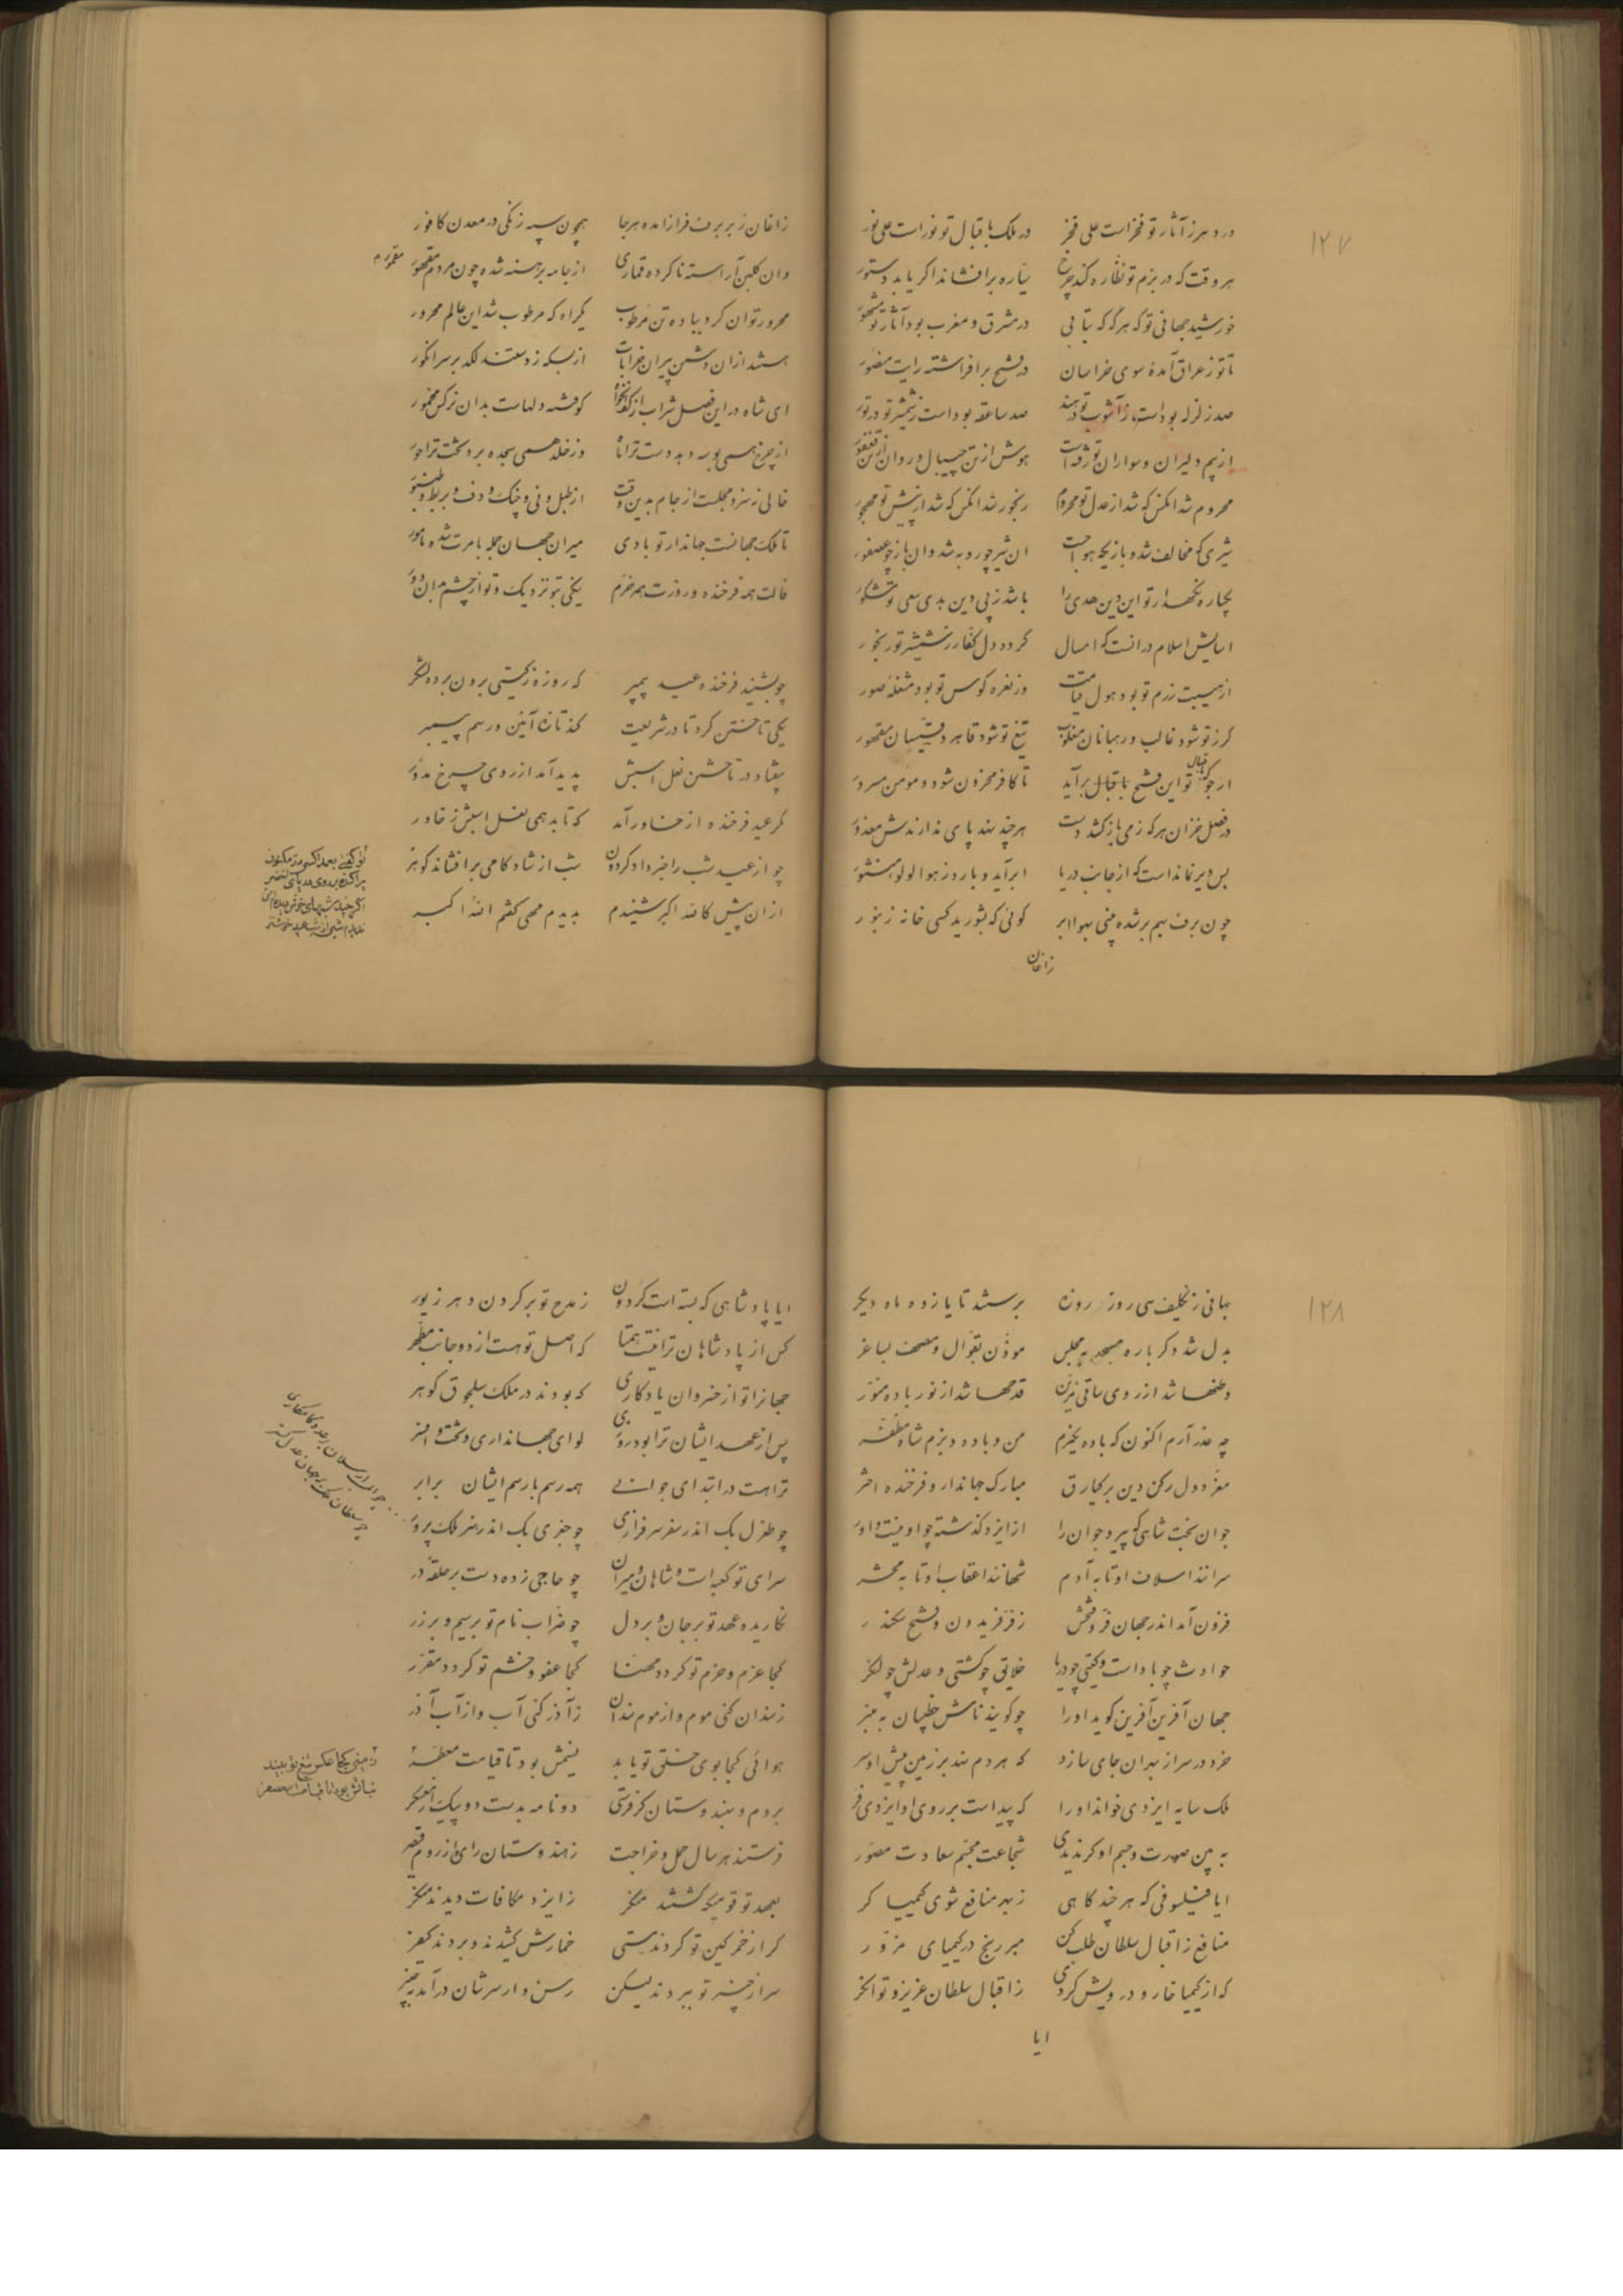 ۱۲۷
در دهر ز آثار تو فخر است علی فخر در ملک باقبال تو نور است علی نور
هر وقت که در بزم تو نظاره کند چرخ سیاره برافشاند اگر یابد دستور
خورشید جهانی تو که هرگه که بتابی در مشرق و مغرب بود آثار تو مشهور
تا تو ز عراق آمدهٔ سوی خراسان در فتح برافراشته رایت منصور
صد زلزله بوداست ز آشوب تو در هند صد صاعقه بوداست ز شمشیر تو در تور
از بیم دلیران و سواران تو رفته است هوش از تن چیپال و روان از تن فغفور
محروم شد انکس که شد از عدل تو محروم رنجور شد انکس که شد از پیش تو مهجور
شیری که مخالف شد و بازیکه هوا جست ان شیر چو روبه شد وان باز چو عصفور
یکباره نگهدار تو این دین هدی را باشد ز پی دین هدی سعی تو مشکور
اسایش اسلام در انست که امسال گردد دل کفار ز شمشیر تو رنجور
از هیبت رزم تو بود هول قیامت وز نعره کوس تو بود مشغله صور
گرز تو شود غالب و رهبانان مغلوب تیغ تو شود قاهر و قسیسان مقهور
ارجو که تو این فتح باقبال برآید تا کافر محزون شود و مومن مسرور
در فصل خزان هرکه ز می بازکشد دست هرچند بند پای ندارندش معذور
بس دیر نماند است که از جانب دریا ابر آید و بارد ز هوا لولو منثور
چون برف بهم بر شده بینی بهوا ابر گوئی که بشورید کسی خانه زنبور
زاغان
زاغان ز بر برف فراز امده هر جا همچون سپه زنگی در معدن کافور
وان گلبن آراسته ناکرده قماری از جامه برهنه شده چون مردم مقمور
محرور توان کرد بباده تن مرطوب یکراه که مرطوب شد این عالم محرور
هستند ازان دشمن پیران خرابات از بسکه زدستند لگد بر سر انگور
ای شاه در این فصل شراب از کف انخواه کو فتنه دلهاست بدان نرگس مخمور
از چرخ همی بوسه دهد دست ترا ماه وز خلد همی سجده برد تخت ترا حور
خالی نسزد مجلست از جام بدین وقت از طبل و نی و چنگ و دف و بربط و طنبور
تا ملک جهانست جهاندار تو بادی میران جهان جمله بامرت شده مامور
فالت همه فرخنده و روزت همه خرم نیکی بتو نزدیک و تو از چشم بدان دور
چو بشنید فرخنده عید پیمبر که روزه ز گیتی برون برد لشکر
یکی تاختن کرد تا در شریعت کند تازه آئین و رسم پیمبر
بیفتاد در تاختن نعل اسبش پدید آمد از روی چرخ مدور
گر عید فرخنده از خاور آمد که تابد همی نعل اسبش ز خاور
چو از عید شب را خبر داد گردون شب از شادکامی برافشاند گوهر
ازان پیش کالله اکبر شنیدم بدیدم مهی گفتم الله اکبر
۱۲۸
جهانی ز تکلیف سی روز روزه برستند تا یازده ماه دیگر
بدل شد دگر باره مسجد بمجلس موذن بقوال و مصحف بساغر
وطنها شد از روی ساقی مزین قدحها شد از نور باده منور
چه عذر آرم اکنون که باده نخورم من و باده و بزم شاه مظفر
معز دول رکن دین برکیارق مبارک جهاندار و فرخنده اختر
جوان بخت شاهی که پیر و جوان را از ایزد گذشته چو او نیست داور
سرانند اسلاف او تا به آدم شهانند اعقاب او تا به محشر
فزون آمد اندر جهان فر و فتحش ز فر فریدون و فتح سکندر
حوادث چو باد است و گیتی چو دریا خلایق چو کشتی و عدلش چو لنگر
جهان آفرین آفرین گوید او را چو گویند نامش خطیبان به منبر
خرد در سر از بهر ان جای سازد که هر دم نهد بر زمین پیش او سر
ملک سایه ایزدی خواند او را که پیداست بر روی او ایزدی فر
به بین صورت و جسم او گر ندیدی شجاعت مجسم سعادت مصور
ایا فیلسوفی که هر چند گاهی ز بهر منافع شوی کیمیا گر
منافع ز اقبال سلطان طلب کن مبر رنج در کیمیای مزور
که از کیمیا خوار و درویش گردی ز اقبال سلطان عزیز و توانگر
ایا
ایا پادشاهی که بسته است گردون ز مدح تو بر گردن دهر زیور
کس از پادشاهان ترا نیست همتا که اصل تو هست از دو جانب مطهر
جهانرا تو از خسروان یادگاری که بودند در ملک سلجوق گوهر
پس از عهد ایشان ترا بود روزی لوای جهانداری و تخت و افسر
ترا هست در ابتدای جوانی همه رسم با رسم ایشان برابر
چو طغرل بک اندر سفر سرفرازی چو جغری بک اندر هنر ملک پرور
سرای تو کعبه است و شاهان و میران چو حاجی زده دست بر حلقه در
نگاریده عهد تو بر جان و بر دل چو ضراب نام تو بر سیم و بر زر
کجا عزم و حزم تو گردد مهنا کجا عفو و خشم تو گردد مقرر
ز سندان کنی موم و از موم سندان ز آذر کنی آب و از آب آذر
هوائی کجا بوی خلق تو یابد نسیمش بود تا قیامت معطر
زمینی کجا عکس تیغ تو بیند نباتش بود تا قیامت معصفر
بروم و بهندوستان گر فرستی دو نامه بدست دو پیک از معسکر
فرستند هر سال حمل و خراجت ز هندوستان رای و از روم قیصر
بعهد تو قومیکه گشتند منکر ز ایزد مکافات دیدند منکر
گر از خمر کین تو کردند مستی خمارش کشیدند و بردند کیفر
سر از چنبر تو ببردند لیکن رسن وار سرشان درآمد بچنبر